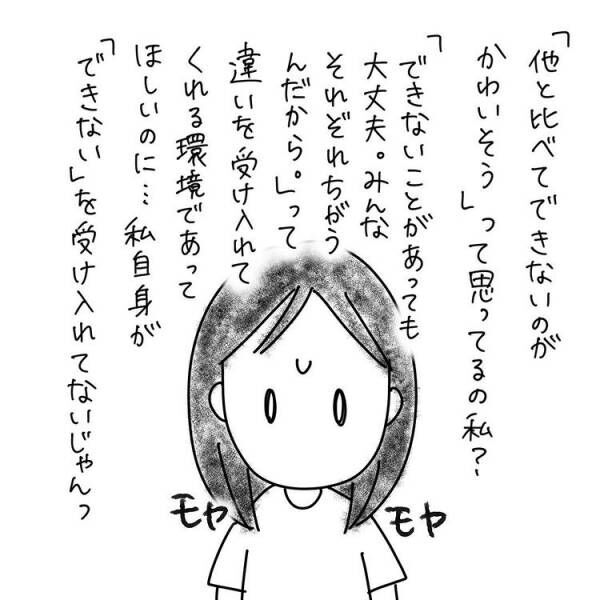 「他と比べてできないのが
かわいそう」って思ってるの私？
「できないことがあっても
大丈夫。みんな
それぞれちがう
んだから。」って
違いを受け入れて
くれる環境であって
ほしいのに…私自身が
「できない」を受け入れてないじゃんっ
モヤ
モヤ